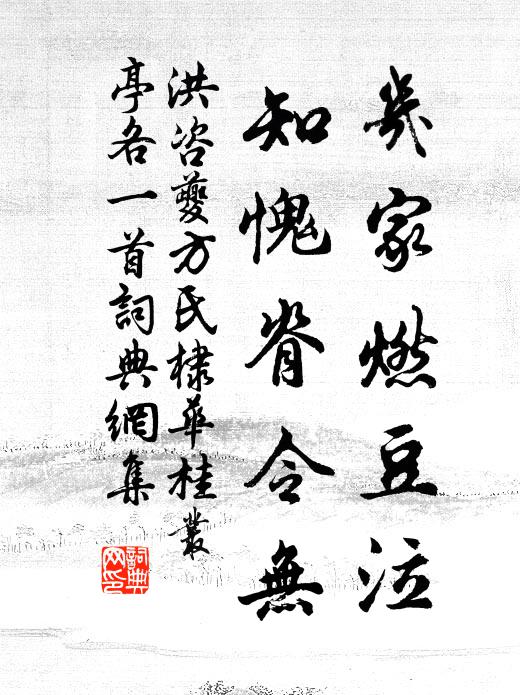 幾家燃豆泣
知愧脊令無
洪咨夔方氏棣華桂叢
亭各一首詞典網集
詞典網印